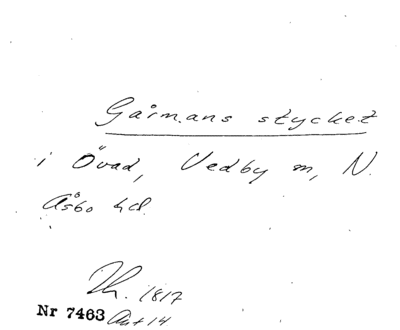 Gåsmans stycket
i Övad, Vedby m, N.
Åsbo hd.
Th. 1817
Nr 7463 Ant 14